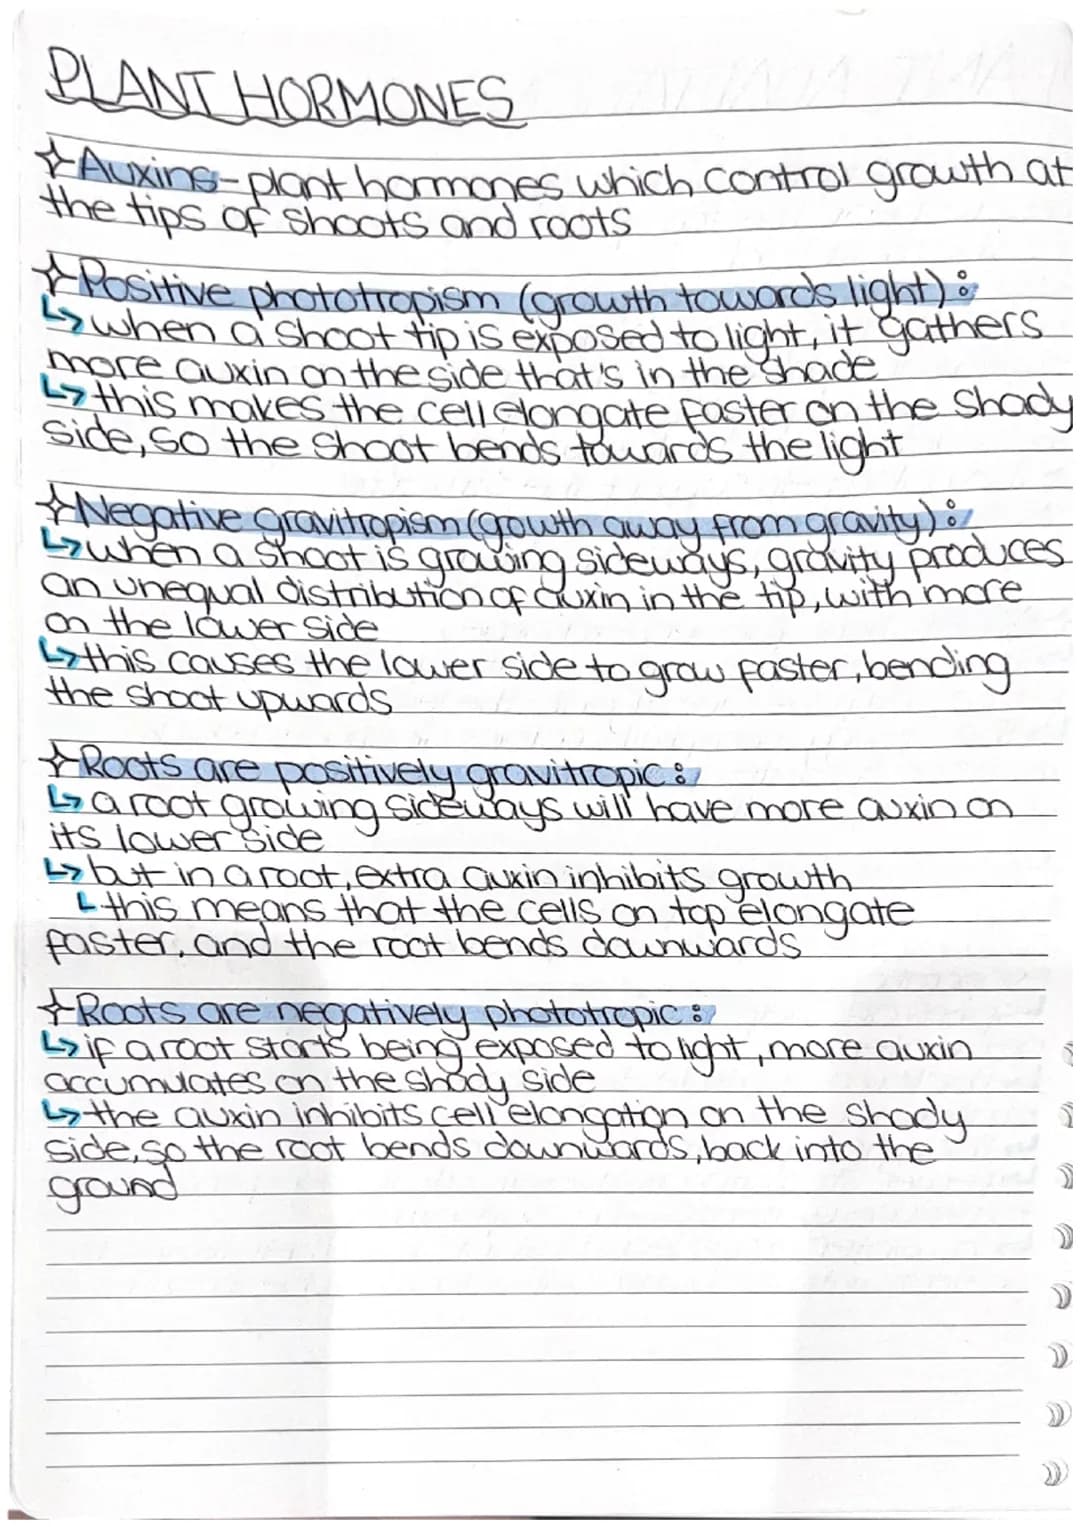 PLANT HORMONES
Auxins - plant hormones which control growth at
the tips of shoots and roots
Positive phototropism (growth towards light):
↳ when a shoot tip is exposed to light, it gathers
more auxin on the side that's in the shade
↳ this makes the cell elongate faster on the shady
side, so the shoot bends towards the light
Negative gravitropism (gowth away from gravity):
↳ when a shoot is growing sideways, gravity produces
an unequal distribution of auxin in the tip, with more
on the lower side
↳ this causes the lower side to grow faster, bending
the shoot upwards
Roots are positively gravitropic:
↳ a root growing sideways will have more auxin on
its lower side
↳ but in a root, extra auxin inhibits growth
↳ this means that the cells on top elongate
faster, and the root bends downwards
Roots are negatively phototropic:
↳ if a root starts being exposed to light, more auxin
accumulates on the shady side
↳ the auxin inhibits cell elongation on the shady
side, so the root bends downwards, back into the
ground